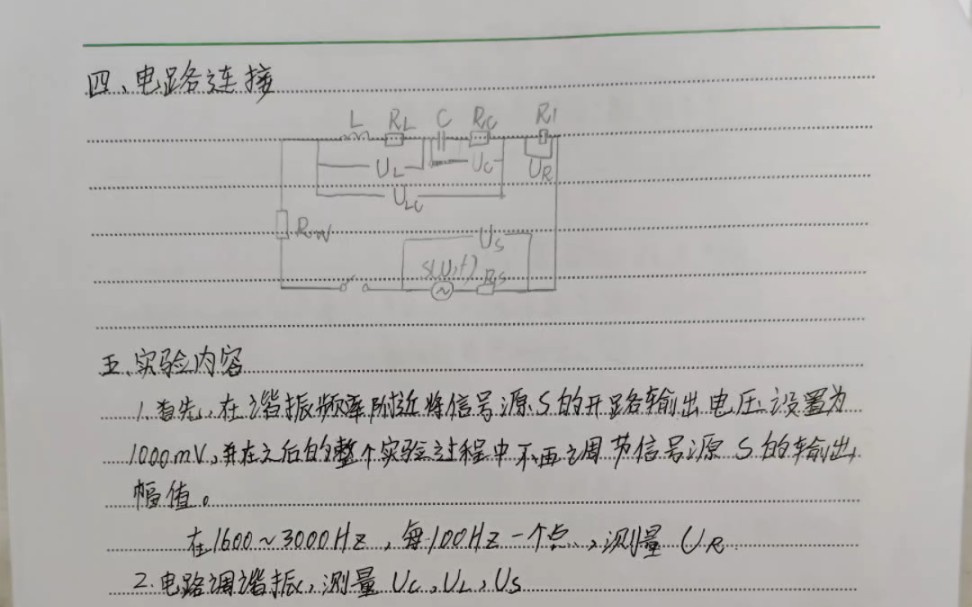 四、电路连接
L RL C RC R1
UL UC UR
ULC
RW US
S(U,f) RS
五、实验内容
1.首先,在谐振频率附近将信号源S的开路输出电压设置为
1000mV,并在之后的整个实验过程中不再调节信号源S的输出
幅值。
在1600~3000Hz,每100Hz一个点,测量UR
2.电路调谐振,测量UC,UL,US